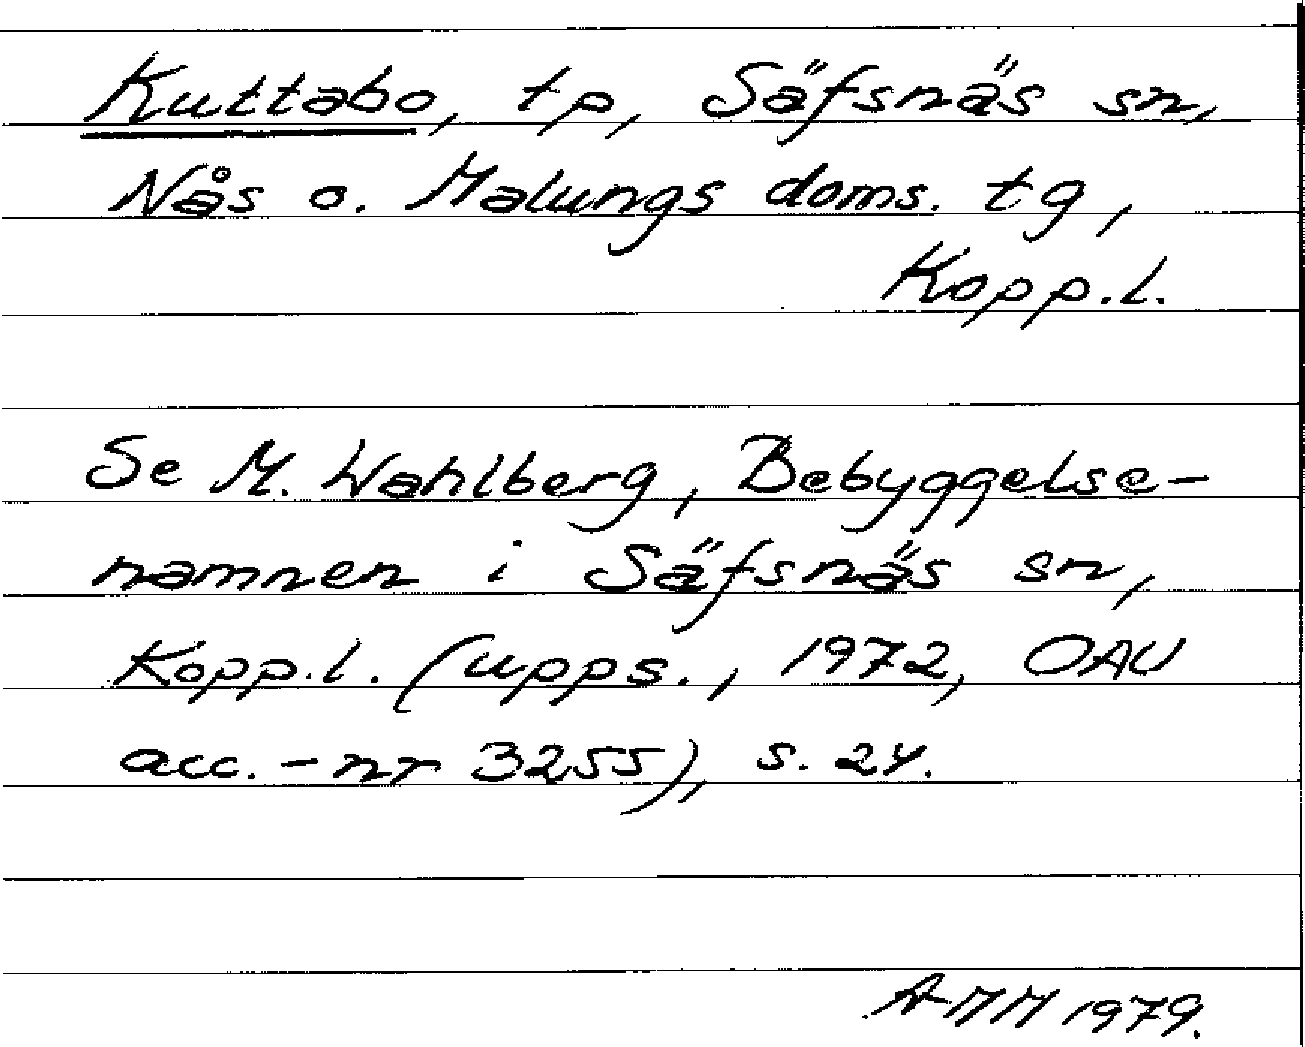 Kuttabo, tp, Säfsnäs sn,
Nås o. Malungs doms. tg,
Kopp.l.
Se M. Wahlberg, Bebyggelse-
namnen i Säfsnäs sn,
Kopp.l. (upps., 1972, OAU
acc.-nr 3255), s. 24.
A-MM 1979.